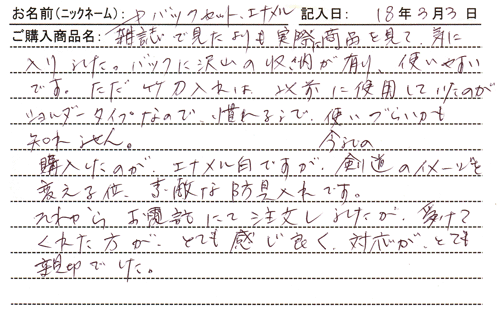 お名前(ニックネーム): ヤ バックセット、エナメル 記入日: 18年3月3日
ご購入商品名: 雑誌で見たよりも実際、商品を見て、気に
入りました。バックに沢山の収納が有り、使いやすい
です。ただ竹刀入れは、以前に使用していたのが
ショルダータイプなので、慣れるまで、使いづらいかも
知れません。 今までの
購入したのが、エナメル白ですが、剣道のイメージを
変える位、素敵な防具入れです。
それから、お電話にて注文しましたが、受けて
くれた方が、とても感じ良く、対応が、とても
親切でした。